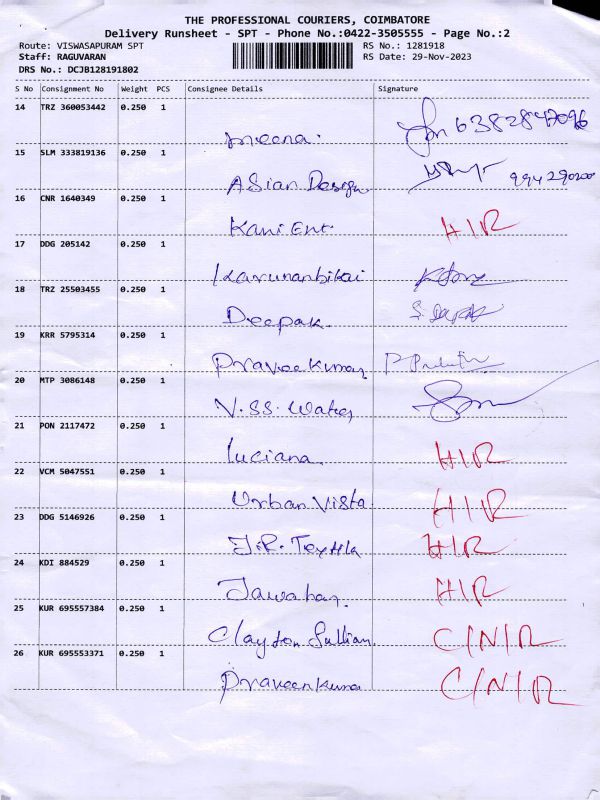 THE PROFESSIONAL COURIERS, COIMBATORE
Delivery Runsheet - SPT - Phone No.:0422-3505555 - Page No.:2
Route: VISWASAPURAM SPT RS No.: 1281918
Staff: RAGUVARAN RS Date: 29-Nov-2023
DRS No.: DCJB128191802
S No Consignment No Weight PCS Consignee Details Signature
14 TRZ 360053442 0.250 1
meena. 6382847096
15 SLM 333819136 0.250 1
Asian Design 994290200
16 CNR 1640349 0.250 1
Kani Ent. H/R
17 DDG 205142 0.250 1
Karunanbikai
18 TRZ 25503455 0.250 1
Deepak.
19 KRR 5795314 0.250 1
Praveekumar
20 MTP 3086148 0.250 1
V.SS. Water
21 PON 2117472 0.250 1
Luciana H/R
22 VCM 5047551 0.250 1
Urban Vista H/R
23 DDG 5146926 0.250 1
J.R. H/R
24 KDI 884529 0.250 1
Jawahar. H/R
25 KUR 695557384 0.250 1
Clayton Sullian. C/N/R
26 KUR 695553371 0.250 1
Praveenkumar C/N/R